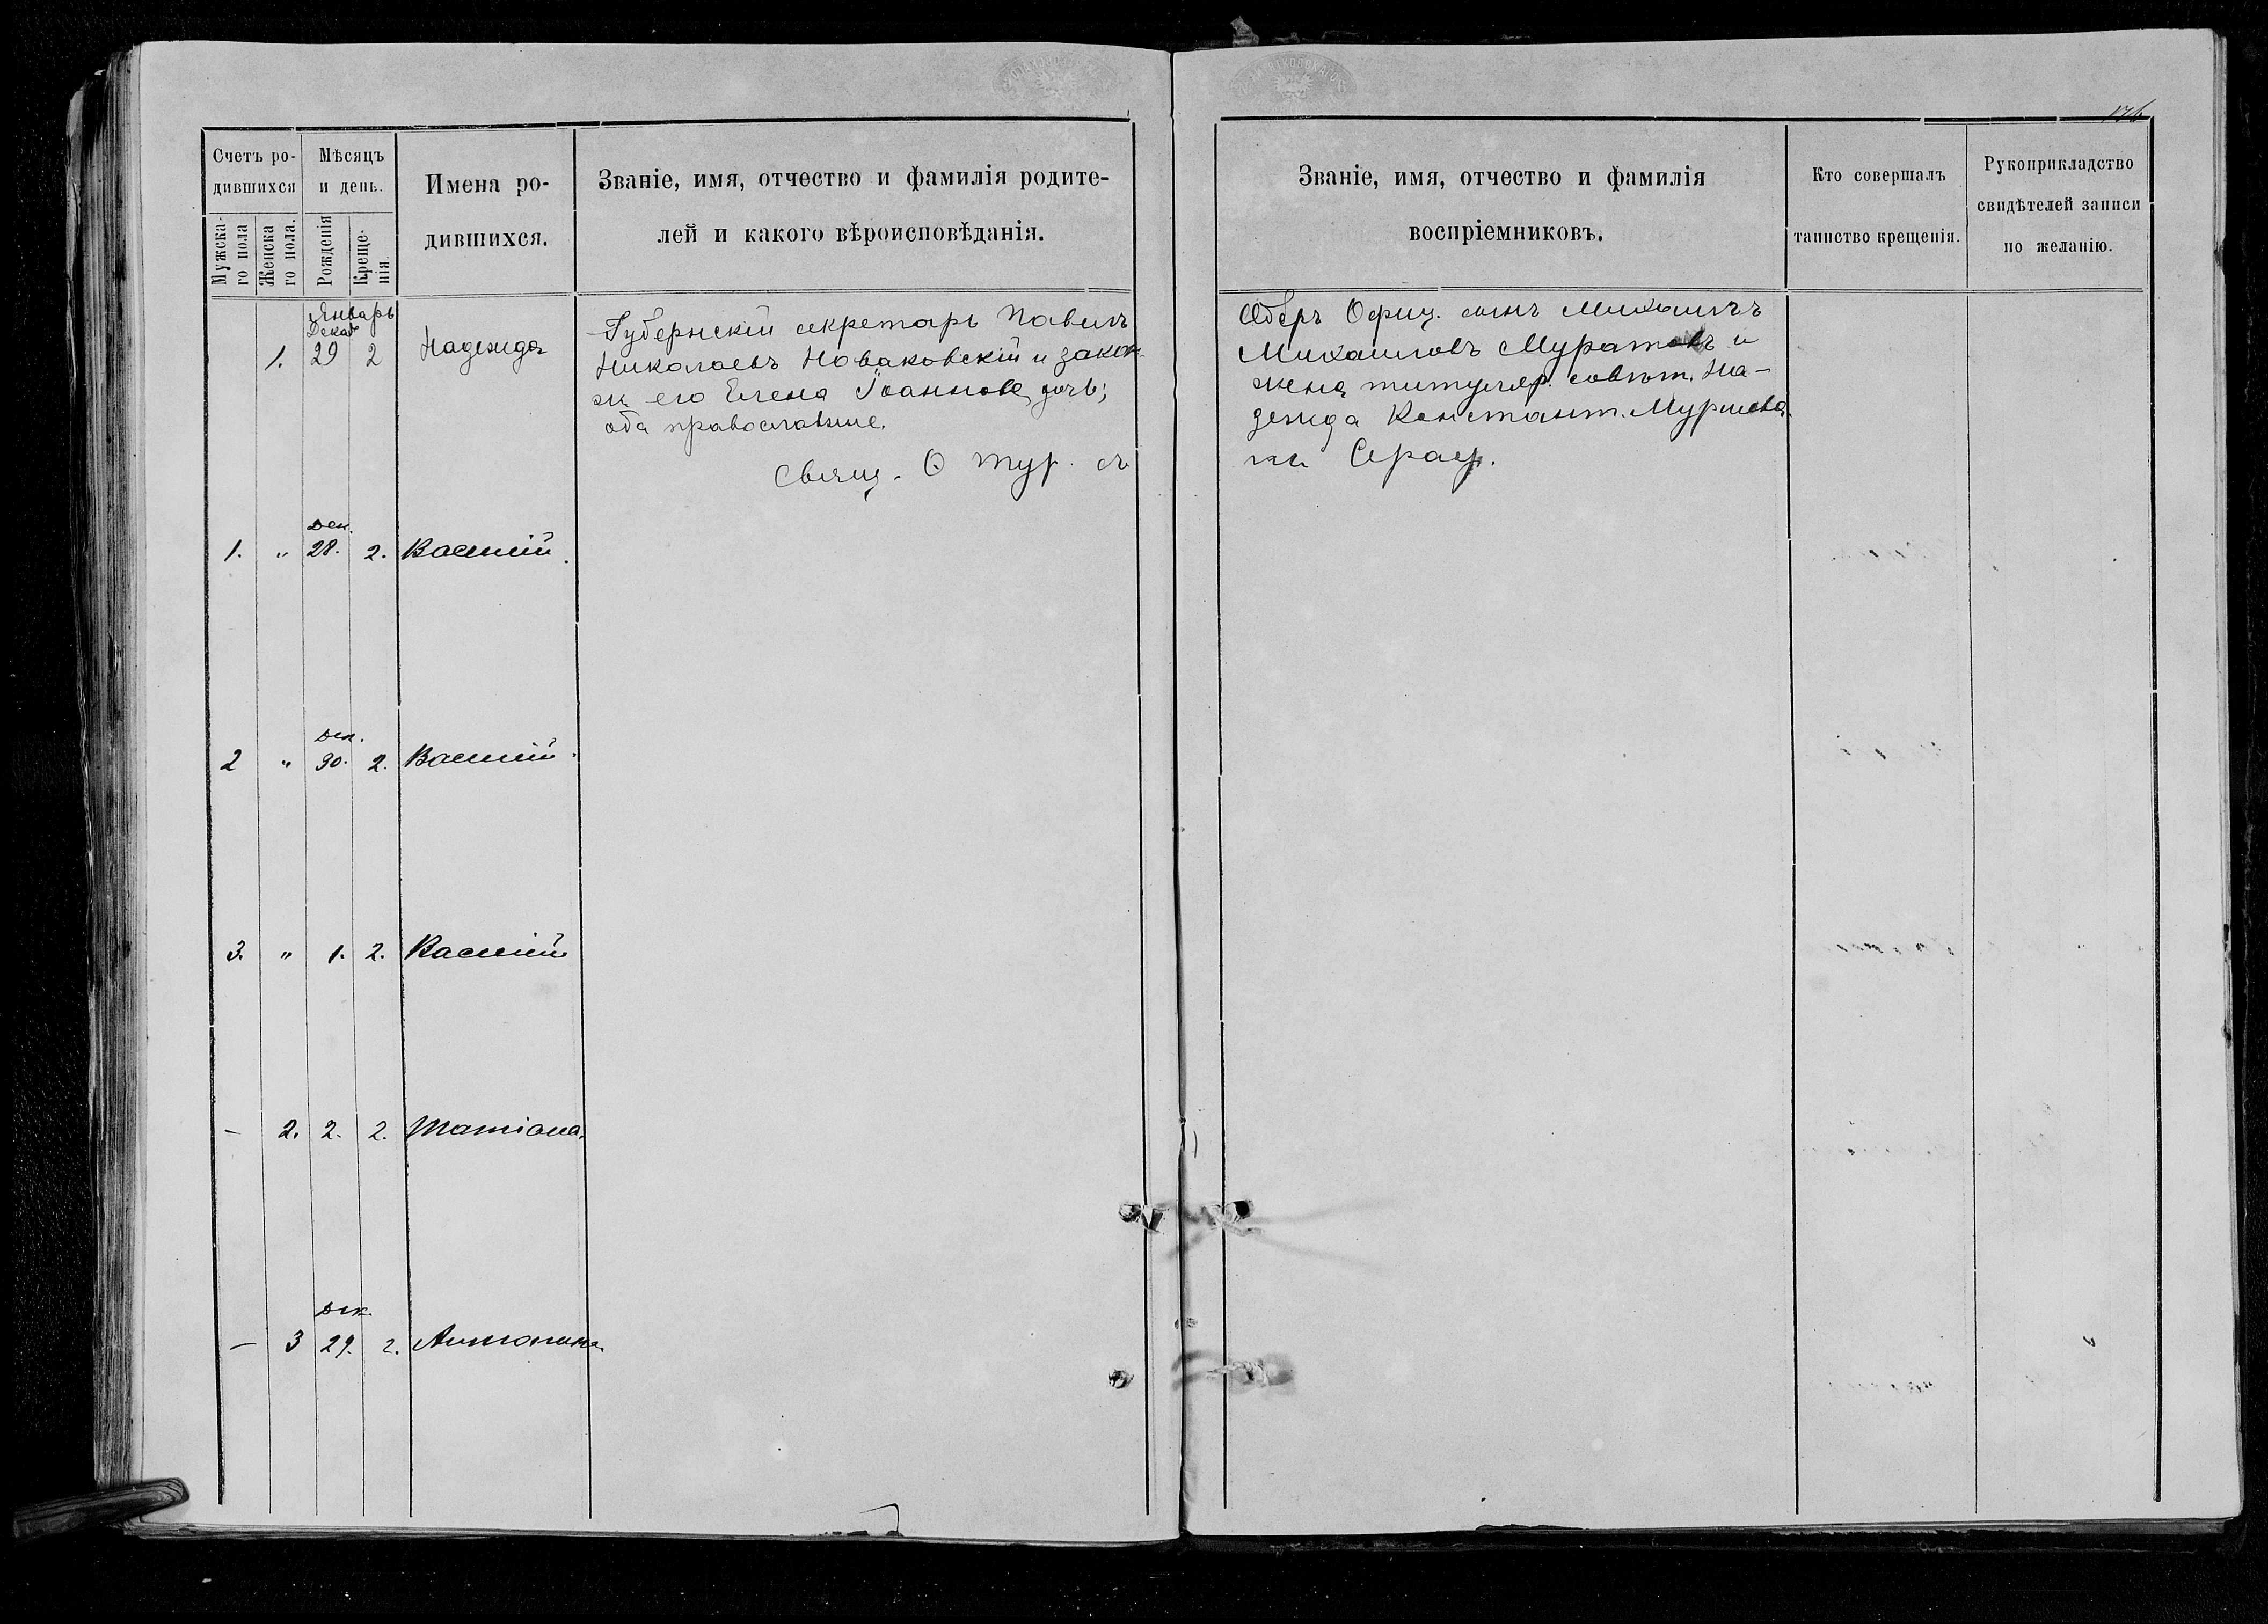 176
Счетъ ро-
дившихся
Мужска-
го пола
Женска
го пола.
Мѣсяцъ
и день.
Рожденія
Креще-
нія.
Имена ро-
дившихся.
Званіе, имя, отчество и фамилія родите-
лей и какого вѣроисповѣданія.
Званіе, имя, отчество и фамилія
воспріемниковъ.
Кто совершалъ
таинство крещенія.
Рукоприкладство
свидѣтелей записи
по желанію.
Январь
Декаб
1. 29 2 Надежда
Губернскій секретарь Павелъ
Николаевъ Новаковскій и закон.
ж. его Елена Іоаннова дочь;
оба православные.
Свящ. С тур. съ
Оберъ Офиц. сынъ Михаилъ
Михаиловъ Муратовъ и
жена титуляр. совѣт. На-
дежда Констант.
Дек.
1. " 28. 2. Василій.
Дек.
2 " 30. 2. Василій.
3. " 1. 2. Василій
- 2. 2. 2. Татіана.
Дек.
- 3 29. 2. Антонина